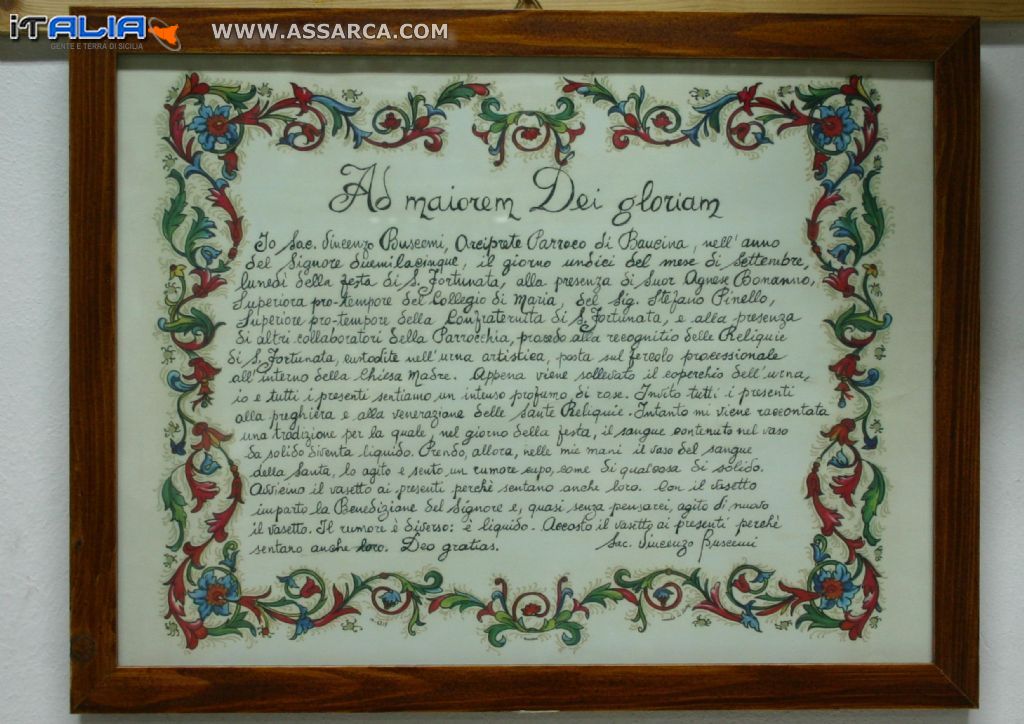 iTALIA
GENTE E TERRA DI SICILIA
WWW.ASSARCA.COM
Ad maiorem Dei gloriam
Io Sac. Vincenzo Buscemi, Arciprete Parroco di Baucina, nell'anno
del Signore duemilacinque, il giorno undici del mese di settembre,
lunedì della festa di S. Fortunata, alla presenza di Suor Agnese Bonanno,
Superiora pro-tempore del Collegio di Maria, del Sig. Stefano Pinello,
Superiore pro-tempore della Confraternita di S. Fortunata, e alla presenza
di altri collaboratori della Parrocchia, procedo alla recognitio delle Reliquie
di S. Fortunata, custodite nell'urna artistica, posta sul fercolo processionale
all'interno della Chiesa Madre. Appena viene sollevato il coperchio dell'urna,
io e tutti i presenti sentiamo un intenso profumo di rose. Invito tutti i presenti
alla preghiera e alla venerazione delle Sante Reliquie. Intanto mi viene raccontata
una tradizione per la quale, nel giorno della festa, il sangue contenuto nel vaso
da solido diventa liquido. Prendo, allora, nelle mie mani il vaso del sangue
della Santa, lo agito e sento un rumore cupo, come di qualcosa di solido.
Avvicino il vasetto ai presenti perchè sentano anche loro. Con il vasetto
imparto la Benedizione del Signore e, quasi senza pensarci, agito di nuovo
il vasetto. Il rumore è diverso: è liquido. Accosto il vasetto ai presenti perchè
sentano anche loro. Deo gratias. Sac. Vincenzo Buscemi